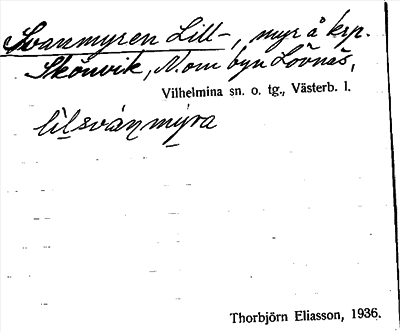 Svanmyren Lill-, myr å krp.
Skönvik, N. om byn Lövnäs,
Vilhelmina sn. o. tg., Västerb. l.
lilsvánmýra
Thorbjörn Eliasson, 1936.